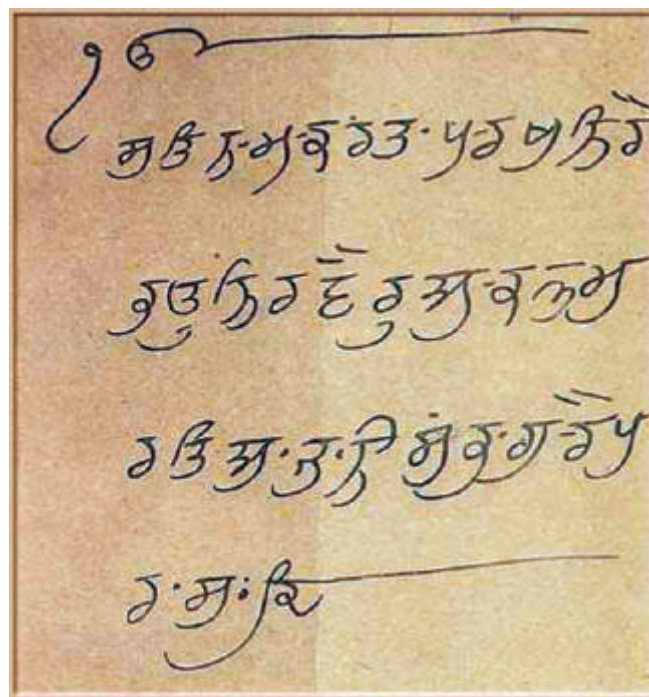 ੴ
ਸਤਿਨਾਮਕਰਤਾਪੁਰਖੁਨਿਰ
ਭਉਨਿਰਵੈਰੁਅਕਾਲਮੂ
ਰਤਿਅਜੂਨੀਸੈਭੰਗੁਰਪ
ਰਸਾਦਿ